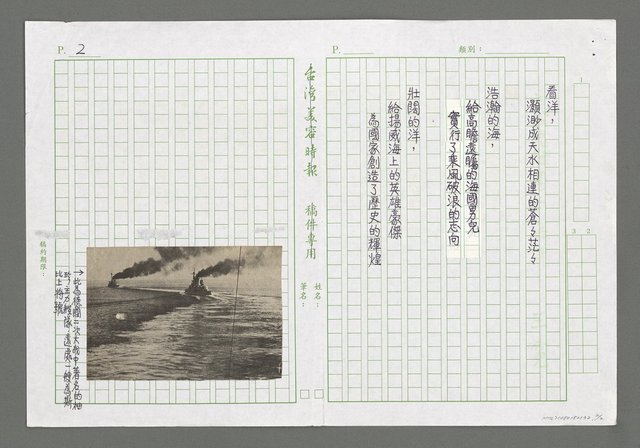 P.
類別：
看洋，
灝渺成天水相連的蒼々茫々
浩瀚的海，
給高瞻遠矚的海國男兒
實行了乘風破浪的志向
壯闊的洋，
給揚威海上的英雄豪傑
為國家創造了歷史的輝煌
1
2
3
台灣美容時報　稿件專用
姓名：
筆名：
P. 2
稿約期限：
此為德國二次大戰中著名的袖